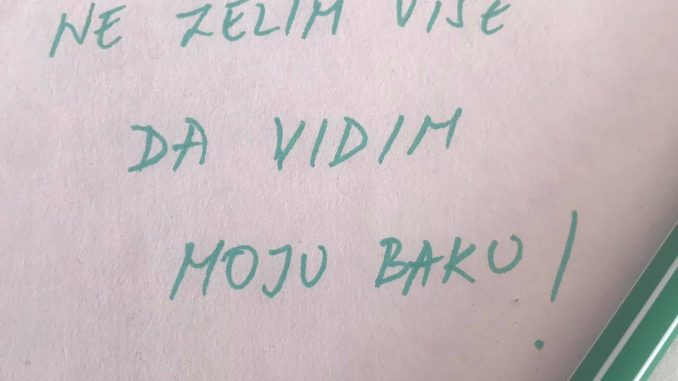 NE ZELIM VIŠE
DA VIDIM
MOJU BAKU!